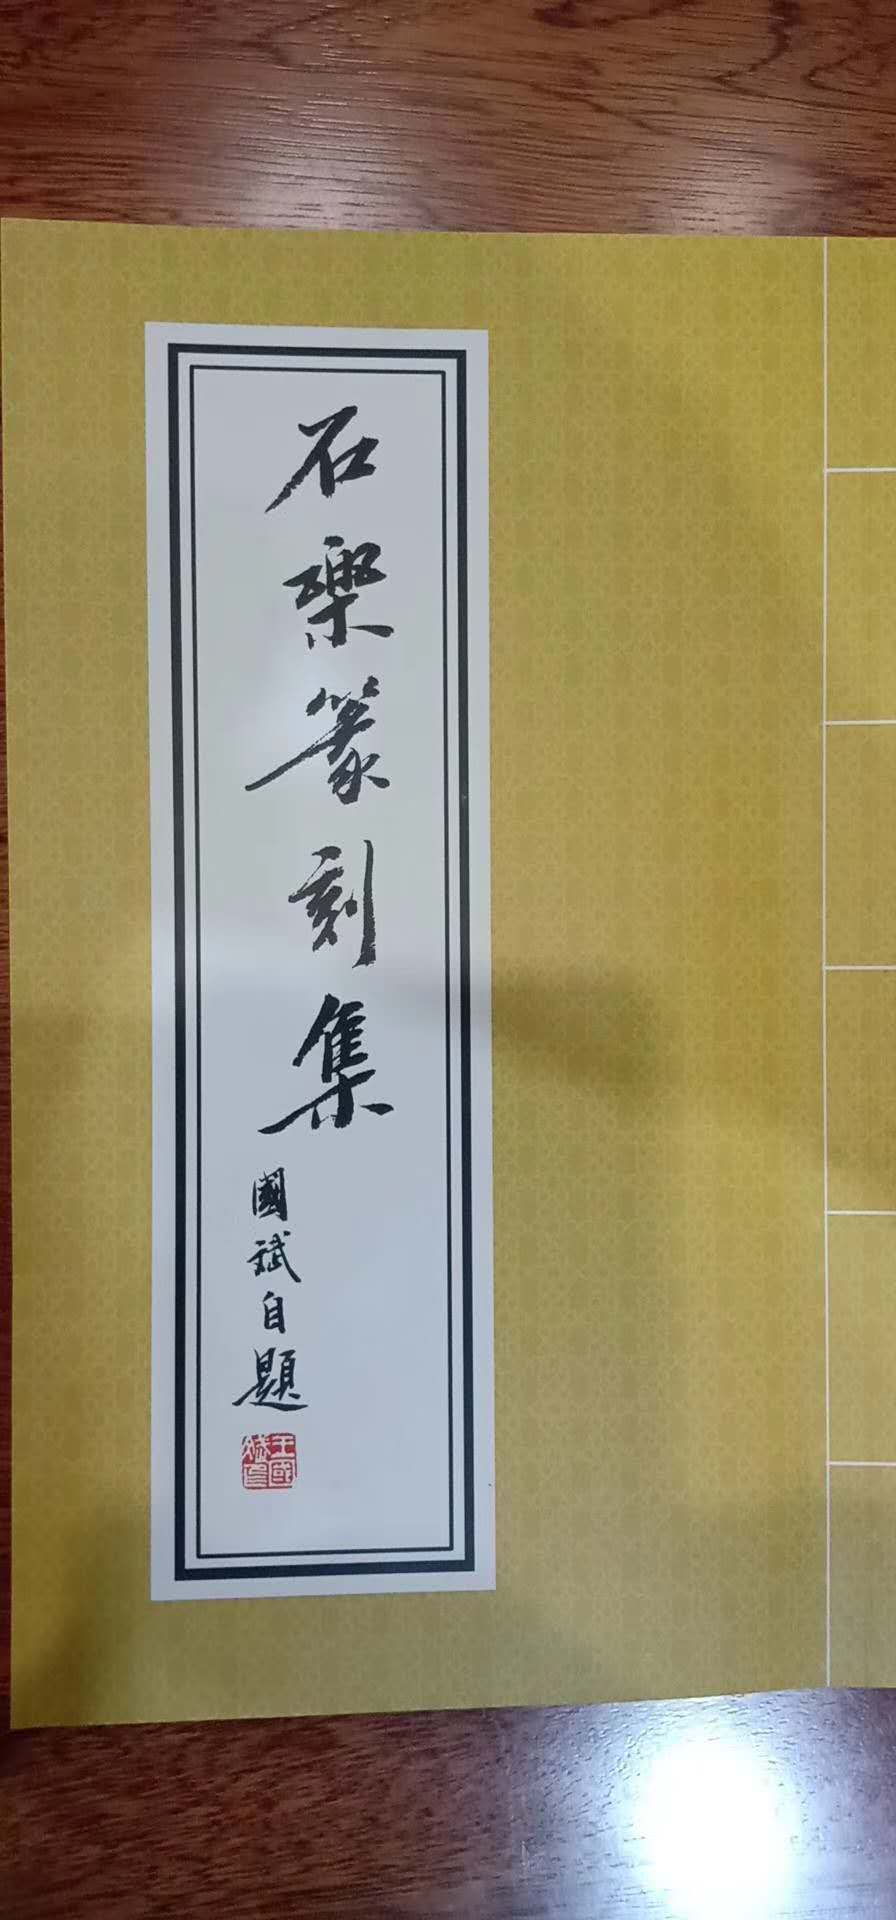 石樂篆刻集
國斌自題
王國斌印